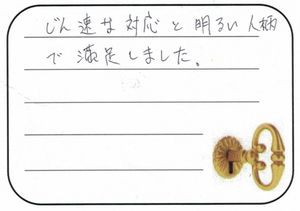 じん速な対応と明るい人柄
で満足しました。